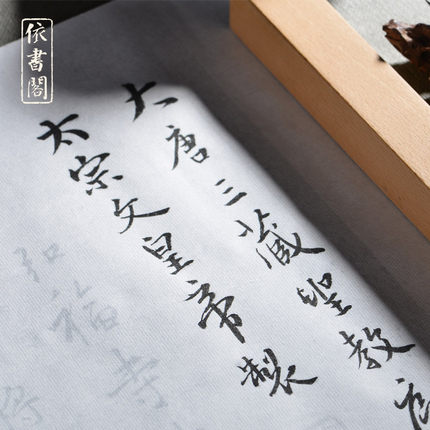 依書閣
大唐三藏聖教序
太宗文皇帝製
弘福寺